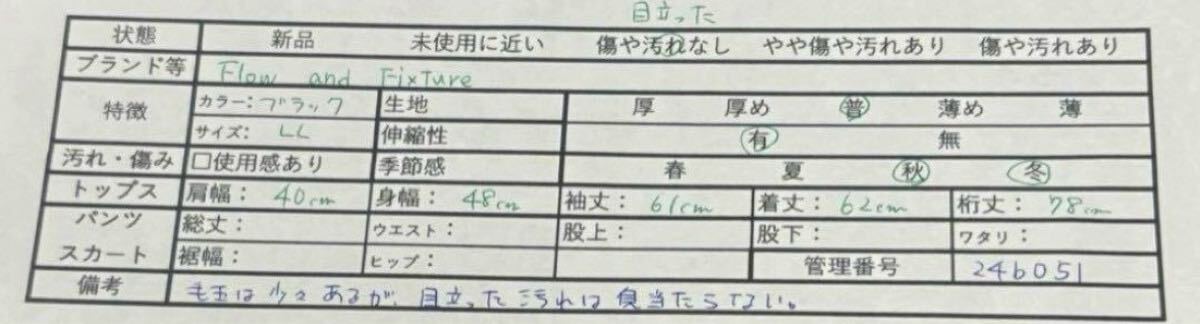 目立った
状態 新品 未使用に近い 傷や汚れなし やや傷や汚れあり 傷や汚れあり
ブランド等 Flow and Fixture
特徴 カラー：ブラック 生地 厚 厚め 普 薄め 薄
サイズ： LL 伸縮性 有 無
汚れ・傷み □使用感あり 季節感 春 夏 秋 冬
トップス 肩幅： 40cm 身幅： 48cm 袖丈： 61cm 着丈： 62cm 桁丈： 78cm
パンツ スカート 総丈： ウエスト： 股上： 股下： ワタリ：
裾幅： ヒップ： 管理番号 246051
備考 毛玉は少々あるが、目立った汚れは見当たらない。